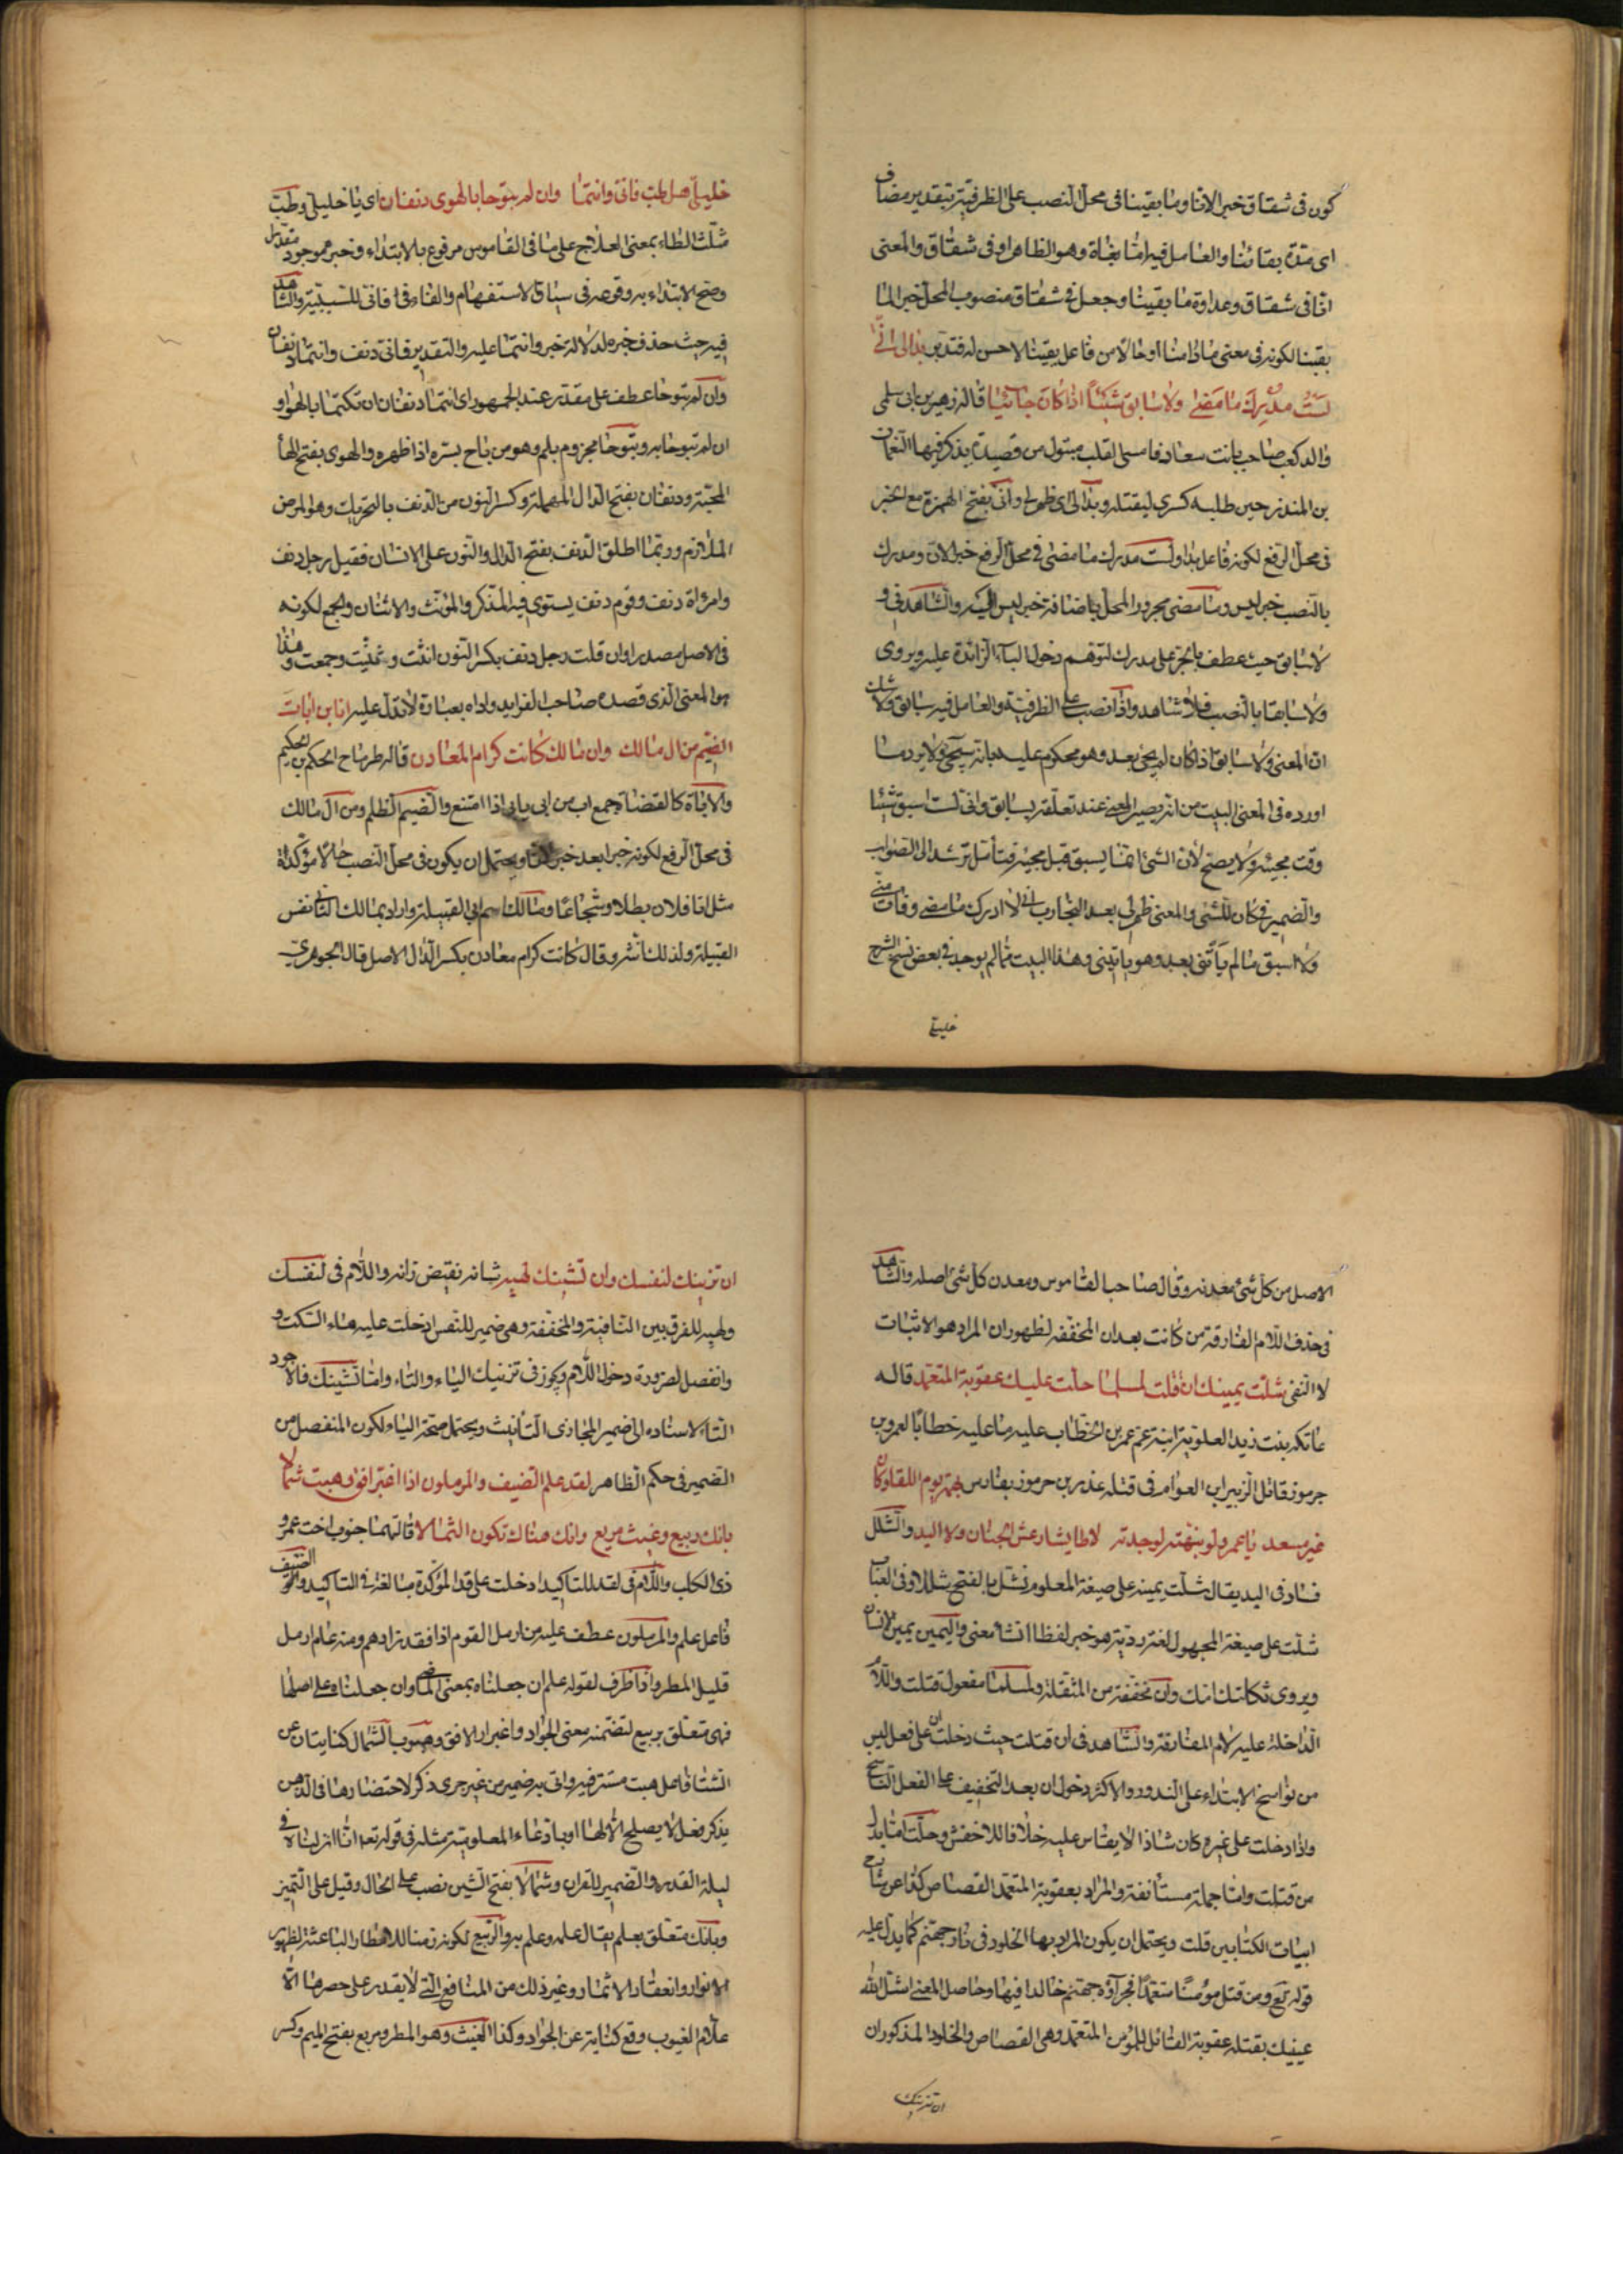 كون فى شقاق خبر الانا وما بقينا فى محل النصب على الظرفية بتقدير مضاف
اى مدة بقائنا والعامل فيه اما بغاة وهو الظاهر او فى شقاق والمعنى
انا فى شقاق وعداوة ما بقينا وجعل فى شقاق منصوب المحل خبر الما
بقينا لكونه فى معنى ما دامنا او حالا من فاعل بقينا لا حسن له فتدبر بدا لى انى
لست مدرك ما مضى ولا سابق شيئا اذا كان جائيا قاله زهير بن ابى سلمى
والد كعب صاحب بانت سعاد فامسى القلب متبول من قصيدة يذكر فيها النعمان
بن المنذر حين طلبه كسرى ليقتله وبدا لى اى ظهر لى وانى بفتح الهمزة مع الخبر
فى محل الرفع لكونه فاعل بدا ولست مدرك ما مضى فى محل الرفع خبر لان ومدرك
بالنصب خبر ليس وما مضى مجرور المحل باضافة خبر ليس اليه والشاهد فى و
لا سابق حيث عطف بالجر على مدرك لتوهم دخول الباء الزائدة عليه ويروى
ولا سابقا بالنصب فلا شاهد واذا نصب على الظرفية والعامل فيه سابق ولا شك
ان المعنى ولا سابق اذا كان لم يجئ بعد وهو محكوم عليه بانه سيجئ ولا يرد ما
اورده فى المعنى البيت من انه يصير المعنى عند تعلقه بسابق وانى لست اسبق شيئا
وقت مجيئه ولا يصح لان الشئ انما يسبق قبل مجيئه فتأمل ترشد الى الصواب
والضمير فى كان للشئ والمعنى ظهر لى بعد التجارب انى لا ادرك ما مضى وفات منى
ولا اسبق ما لم يأتنى بعد وهو يأتينى وهذا البيت مما لم يوجد فى بعض نسخ الشرح
خليلى
خليلى هل طب فانى وانتما وان لم تبوحا بالهوى دنفان اى يا خليلى وطب
مثلث الطاء بمعنى العلاج على ما فى القاموس مرفوع بالابتداء وخبره موجود مقدر
وصح الابتداء به وقوعه فى سياق الاستفهام والفاء فى فانى للسببية والشاهد
فيه حيث حذف خبره لدلالة خبر وانتما عليه والتقدير فانى دنف وانتما دنفان
وان لم تبوحا عطف على مقدر عند الجمهور اى انتما دنفان ان تكتما بالهوى او
ان لم تبوحا به وتبوحا مجزوم بلم وهو من باح بسره اذا ظهره والهوى بفتح الهاء
المحبة ودنفان بفتح الدال المهملة وكسر النون من الدنف بالتحريك وهو المرض
الملازم وربما اطلق الدنف بفتح الدال والنون على الانسان فقيل رجل دنف
وامرأة دنف وقوم دنف يستوى فيه المذكر والمؤنث والاثنان والجمع لكونه
فى الاصل مصدرا وان قلت رجل دنف بكسر النون انثت وثنيت وجمعت وهذا
هو المعنى الذى قصده صاحب الفرايد واداه بعبارة لا تدل عليه انا ابن اباة
الضيم من ال مالك وان مالك كانت كرام المعادن قاله طرماح الحكم بن حكيم
والاباة كالقضاة جمع اب من ابى يابى اذا امتنع والضيم الظلم ومن ال مالك
فى محل الرفع لكونه خبرا بعد خبر لانا ويحتمل ان يكون فى محل النصب حالا مؤكدة
مثل انا فلان بطلا وشجاعا ومالك اسم ابى القبيلة واراد بمالك الثانى نفس
القبيلة ولذلك انثه وقال كانت كرام معادن بكسر الدال الاصل قال الجوهرى
الاصل من كل شئ معدنه وقال صاحب القاموس ومعدن كل شئ اصله والشاهد
فى حذف اللام الفارقة من كانت بعد ان المخففة لظهور ان المراد هو الاثبات
لا النفى شلت يمينك ان قتلت لمسلما حلت عليك عقوبة المتعمد قاله
عاتكة بنت زيد العلوية ابنة عم عمر بن الخطاب عليه ما عليه خطابا لعمرو بن
جرموز قاتل الزبير بن العوام فى قتله غدر بن جرموز بفارس بهمة يوم اللقا وكان
غير مسعد يا عمرو لو نبهته لوجدته لا طايشا رعش الجنان ولا اليد والشلل
فساد فى اليد يقال شلت يمينه على صيغة المعلوم تشل بالفتح شللا وفى العباب
شلت على صيغة المجهول لغة ردية هو خبر لفظا انشا معنى واليمين يمين الانسان
ويروى ثكلتك امك وان مخففة من المثقلة ولمسلما مفعول قتلت واللام
الداخلة عليه لام المفارقة والشاهد فى ان قتلت حيث دخلت ان على فعل ليس
من نواسخ الابتداء على الندور والاكثر دخول ان بعد التخفيف على الفعل الناسخ
واذا دخلت على غيره كان شاذا لا يقاس عليه خلافا للاخفش وحلت اما بدل
من قتلت واما جملة مستأنفة والمراد بعقوبة المتعمد القصاص كذا عن شارح
ابيات الكتابين قلت ويحتمل ان يكون المراد بها الخلود فى نار جهنم كما يدل عليه
قوله تع ومن قتل مؤمنا متعمدا فجزاؤه جهنم خالدا فيها وحاصل المعنى اشل الله
يمينك بقتله عقوبة القاتل للمؤمن المتعمد وهى القصاص والخلود المذكوران
ان تزينك
ان تزينك لنفسك وان تشينك لهيه شانه نقيض زانه واللام فى لنفسك
ولهيه للفرق بين النافية والمخففة وهى ضمير للنفس ادخلت عليه هاء السكت و
وانفصل لضرورة دخول اللام ويجوز فى تزنيك الياء والتاء واما تشينك فالاجود
التاء لاسناده الى ضمير المجازى التأنيث ويحتمل صحة الياء لكون المنفصل من
الضمير فى حكم الظاهر لقد علم الضيف والمرملون اذا اغبر افق وهبت شمالا
بانك ربيع وغيث مريع وانك هناك تكون الثمالا قالتهما جنوب اخت عمرو
ذى الكلب واللام فى لقد للتاكيد ادخلت على قد المؤكدة مبالغة فى التاكيد والضيف
فاعل علم والمرملون عطف عليه من ارمل القوم اذا فقد زادهم ومنه عام ارمل
قليل المطر واذا ظرف لقوله علم ان جعلناه بمعنى الماضى وان جعلناه على اصلها
فهى متعلق بربيع لتضمنه معنى الجواد واغبرار الافق وهبوب الشمال كنايتان عن
الشتا فاعل هبت مستتر فيه وانى به ضمير من غير جرى ذكر لاحتضارها فى الذهن
يذكر فعل لا يصلح الا لها او بادعاء المعلومية مثله فى قوله تعه انا انزلناه فى
ليلة القدر والضمير للقران وشمالا بفتح الشين نصب على الحال وقيل على التميز
وبانك متعلق بعلم يقال علمه وعلم به والربيع لكونه زمنا للامطار الباعثة لظهور
الانوار وانعقاد الاثمار وغير ذلك من المنافع التى لا يقدر على حصرها الا
علام الغيوب وقع كناية عن الجواد وكذا الغيث وهو المطر ومريع بفتح الميم وكسر